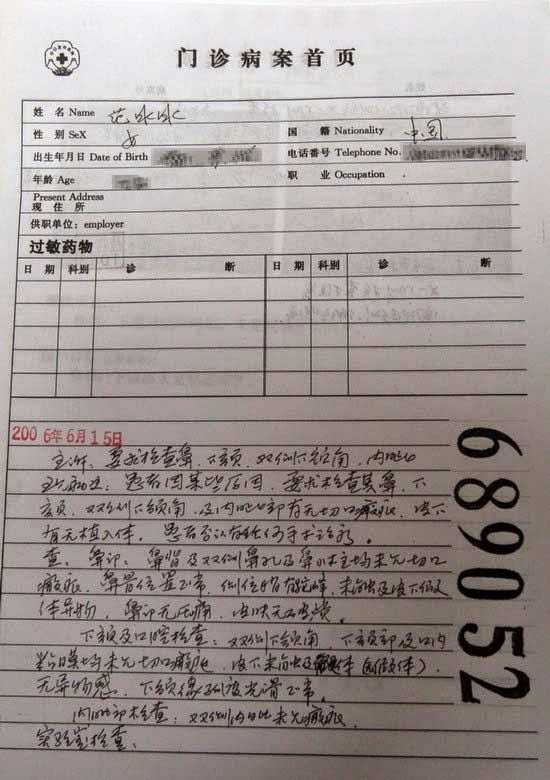 门诊病案首页
姓 名 Name 范冰冰
性 别 SeX 女 国 籍 Nationality 中国
出生年月日 Date of Birth 电话番号 Telephone No.
年龄 Age 职 业 Occupation.
Present Address
现 住 所
供职单位: employer
过敏药物
日 期 科别 诊 断 日 期 科别 诊 断
2006年6月15日
主诉: 要求检查鼻、下颏、双侧下颌角、内眦
患者因某些原因, 要求检查其鼻、下
颏、双侧下颌角、及内眦部有无切口瘢痕, 皮下
有无植入体。患者否认有任何手术诊治。
查: 鼻部: 鼻背及双侧鼻孔及鼻小柱均未见切口
瘢痕, 鼻骨位置正常, 侧位 有驼峰, 未触及皮下假
体异物, 鼻部无压痛, 皮肤无
下颏及口腔检查: 双侧下颌角、下颏部及口内
粘膜均未见切口瘢痕, 皮下未触及 (假体)。
无异物感, 下颌缘 光滑正常。
内眦部检查: 双侧内眦未见瘢痕。
实验室检查:
689052